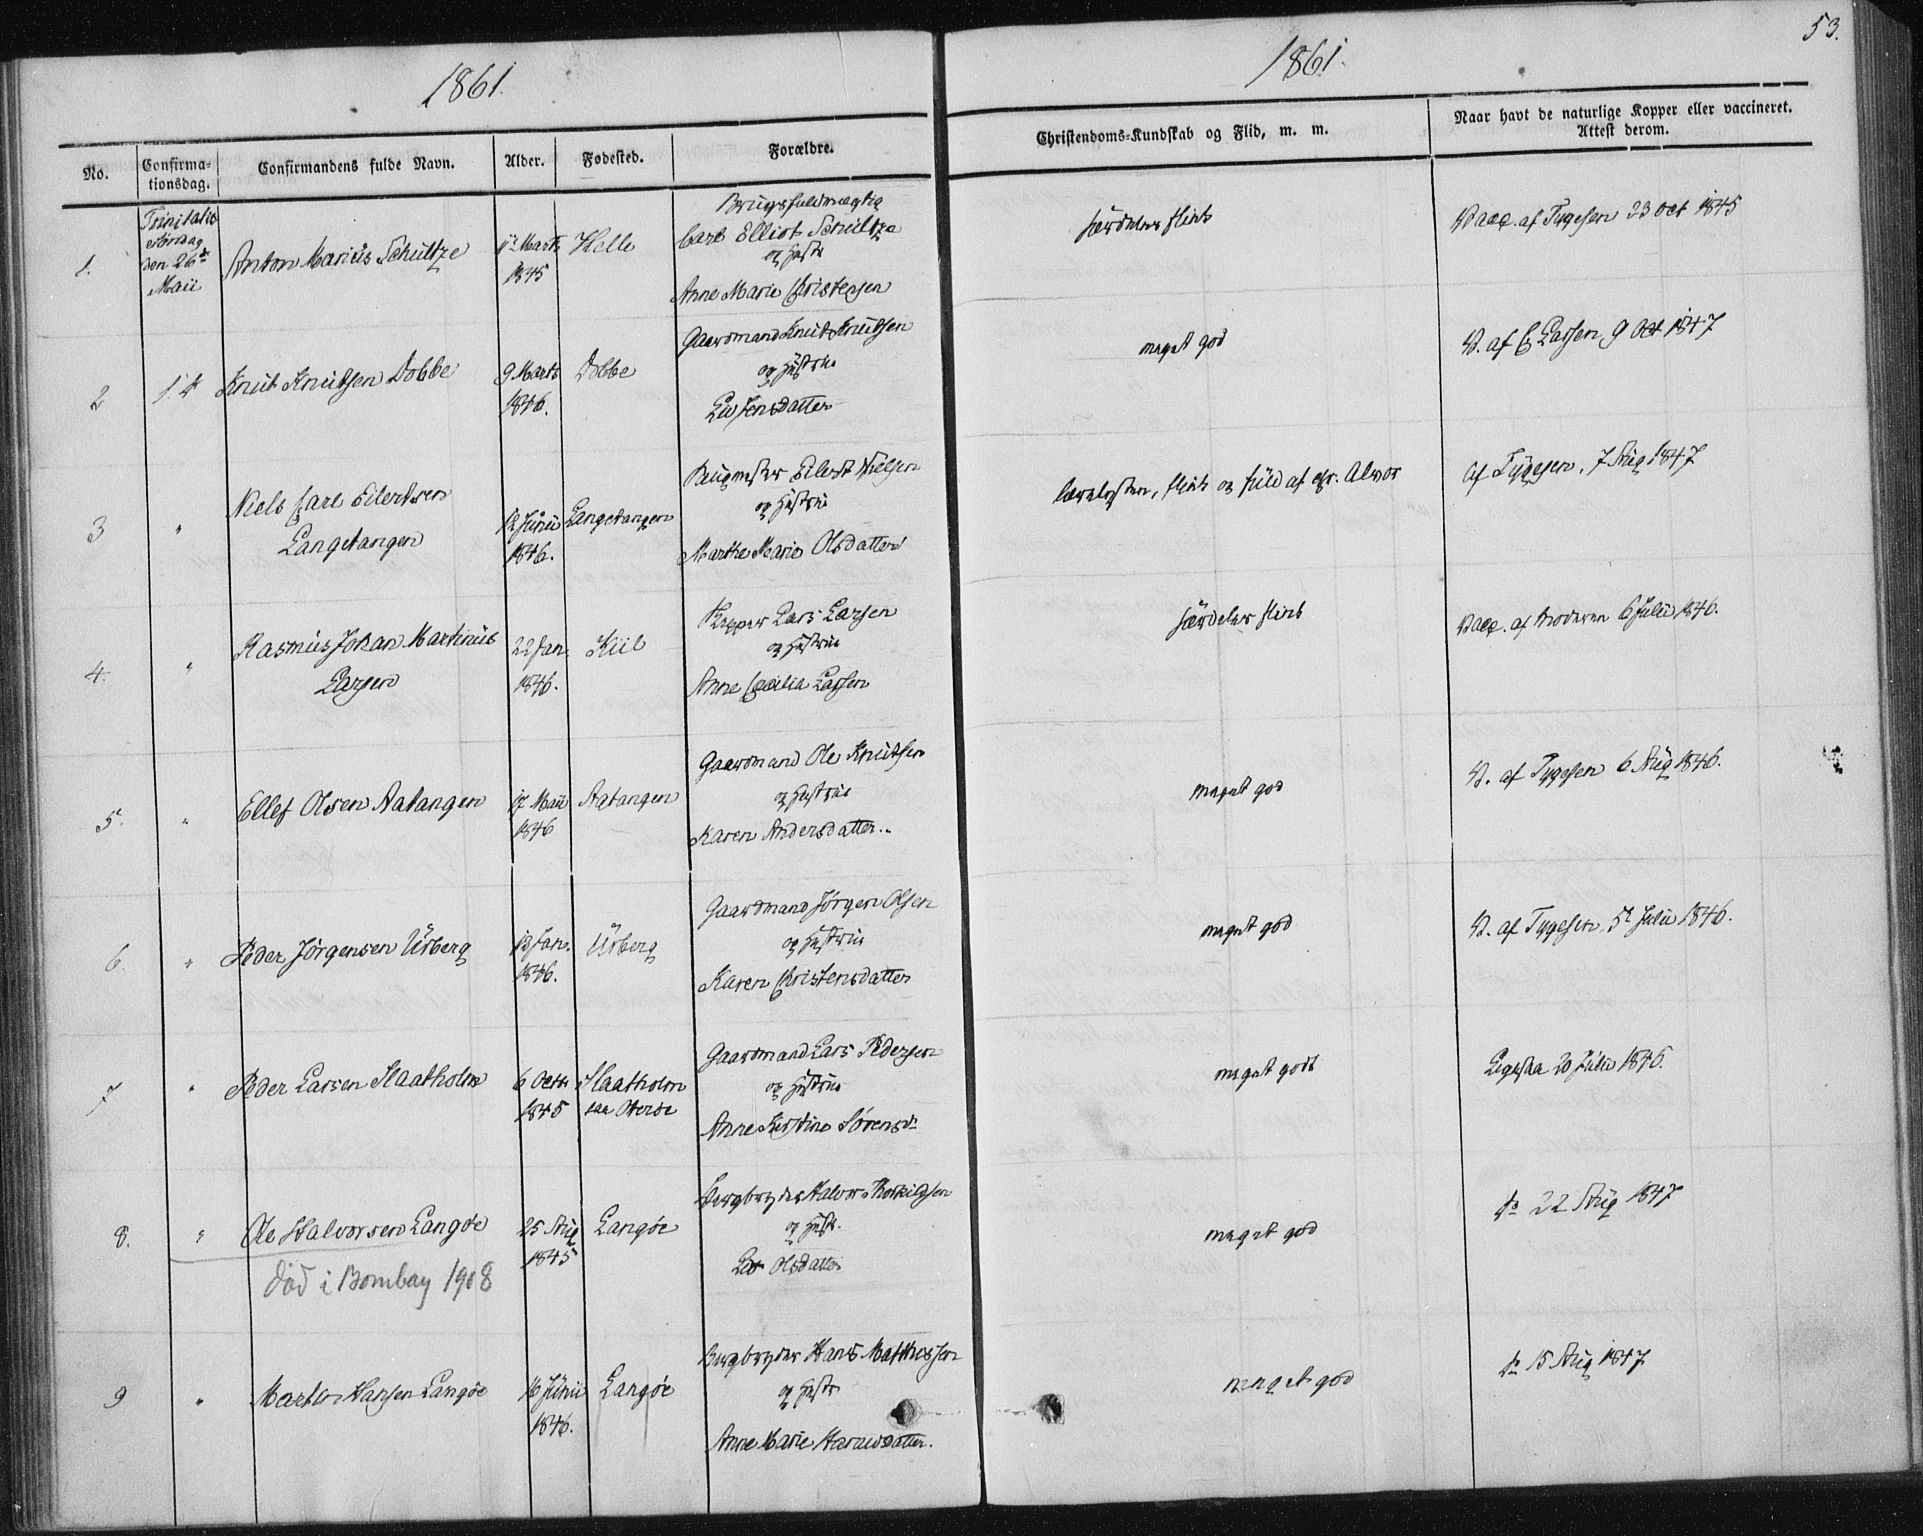 53.
1861.
1861.
No.
Confirma-
tionsdag.
Confirmandens fulde Navn.
Alder.
Fødested.
Forældre.
Christendoms-Kundskab og Flid, m. m.
Naar havt de naturlige Kopper eller vaccineret.
Attest derom.
1.
Trinitatis
Søndag
den 26de
Maii
Anton Marius Schültze
Marts
1845
Helle
Brugsfuldmægtig
Carl Elliot Schültze
og Hustr
Anne Marie Christensen
særdeles flink
Vacc. af Tygesen 23 Oct 1845
2
Knut Knutsen Dobbe
9 Marts
1846.
Dobbe
Gaardmand Knut Knutsen
og Hustrue
Liv Jensdatter
meget god
V. af C Lassen 9 Oct 1847
3
"
Niels Carl Eilertsen
Langetangen
12 Junii
1846.
Langetangen
Eilert Nielsen
og Hustrue
Marthe Marie Olsdatter
lærelysten, flink og fuld af chr. Alvor
af Tygesen, 7 Aug 1847
4.
"
Rasmus Johan Martinius
Larsen
22 Jan.
1846.
Kiil
Lars Larsen
og Hustrue
Anne Cecilia Larsen
særdeles flink
Vacc. af Moderen 6 Julii 1846.
5.
"
Ellef Olsen Aatangen
17 Maii
1846
Aatangen
Gaardmand Ole Knutsen
og Hustrue
Karen Andersdatter
meget god
V. af Tygesen 6 Aug 1846.
6.
"
Peder Jörgensen Urberg
13 Jan.
1846.
Urberg
Gaardmand Jörgen Olsen
og Hustrue
Karen Christensdatter
meget god
V. af Tygesen, 5 Julii 1846.
7
"
Peder Larsen Slaatholm
6 Octr
1845
Slaatholm
Gaardmand Lars Pedersen
og Hustrue
Anne Kirstine Sörensd
meget godt
Ligesaa 20 Julii 1846.
8.
"
Ole Halvorsen Langöe
25 Aug
1845
Langöe
Bergbryder Halvor Thorkildsen
og Hustr.
Liv Olsdatter
meget god
do 22 Aug 1847
död i Bombay 1908
9
"
Martin Hansen Langöe
16 Junii
1846.
Langöe
Bergbryder Hans Mathissen
og Hustr
Anne Marie
meget god
do 15 Aug 1847